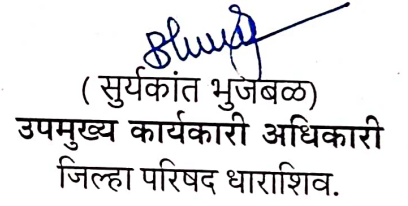 ( सुर्यकांत भुजबळ)
उपमुख्य कार्यकारी अधिकारी
जिल्हा परिषद धाराशिव.